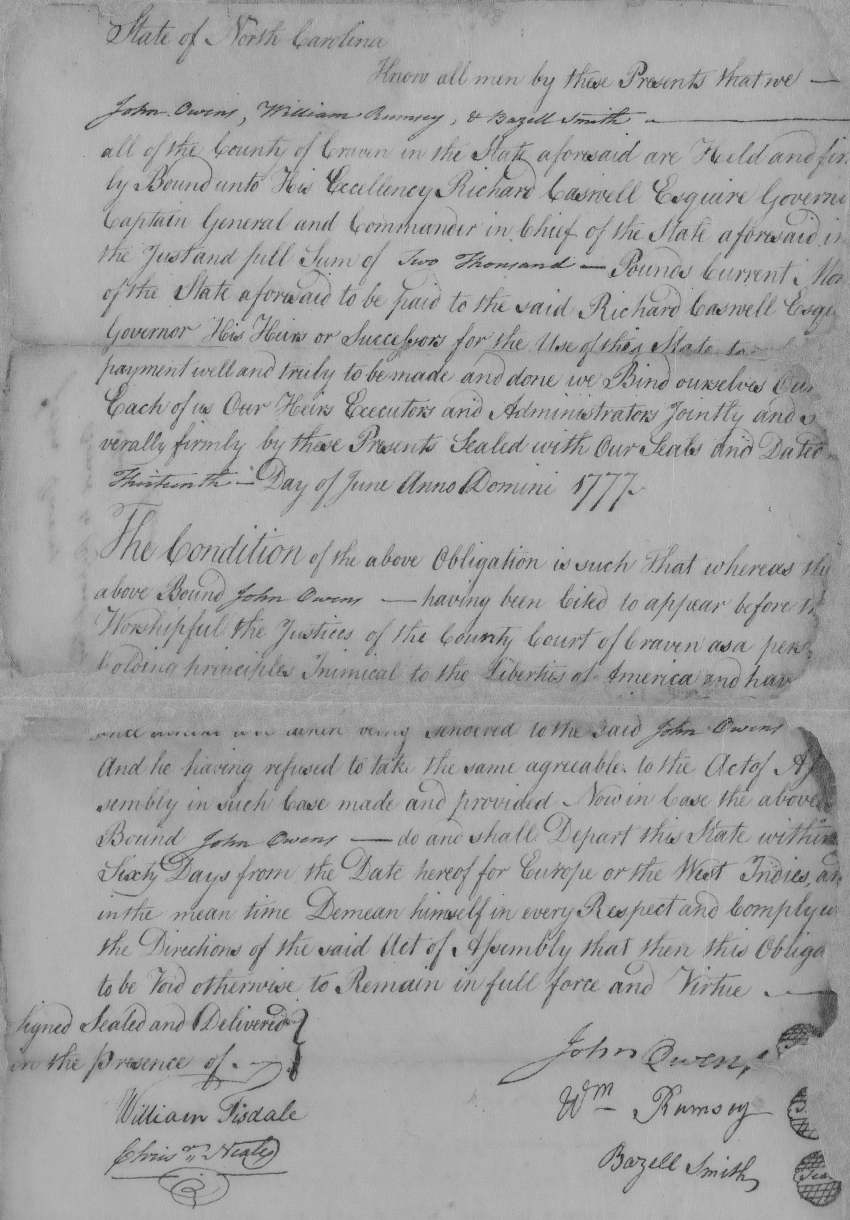 State of North Carolina
Know all men by these Presents that we —
John Owens, William Rumsey, & Bazell Smith
all of the County of Craven in the State aforesaid are Held and fir
by Bound unto His Excellency Richard Caswell Esquire Govern
Captain General and Commander in Chief of the State aforesaid in
the Just and full Sum of Two Thousand — Pounds Current Mon
of the State aforesaid to be paid to the said Richard Caswell Esqu
Governor His Heirs or Successors for the Use of this State to
payment well and truly to be made and done we Bind ourselves Our
Each of us Our Heirs Executors and Administrators Jointly and s
verally firmly by these Presents Sealed with Our Seals and Dated
Thirteenth — Day of June Anno Domini 1777.
The Condition of the above Obligation is such That whereas the
above Bound John Owens — having been Cited to appear before th
Worshipful the Justices of the County Court of Craven as a pers
holding principles Inimical to the Liberties of America and hav
being tendered to the said John Owens
And he having refused to take the same agreeable to the Act of As
sembly in such Case made and provided Now in Case the above
Bound John Owens — do and shall Depart this State within
Sixty Days from the Date hereof for Europe or the West Indies, an
in the mean time Demean himself in every Respect and Comply w
the Directions of the said Act of Assembly that then this Obliga
to be Void otherwise to Remain in full force and Virtue —
Signed Sealed and Delivered
in the presence of. —
John Owens
William Tisdale
Wm Rumsey
Chrisr. Neale
Bazell Smith